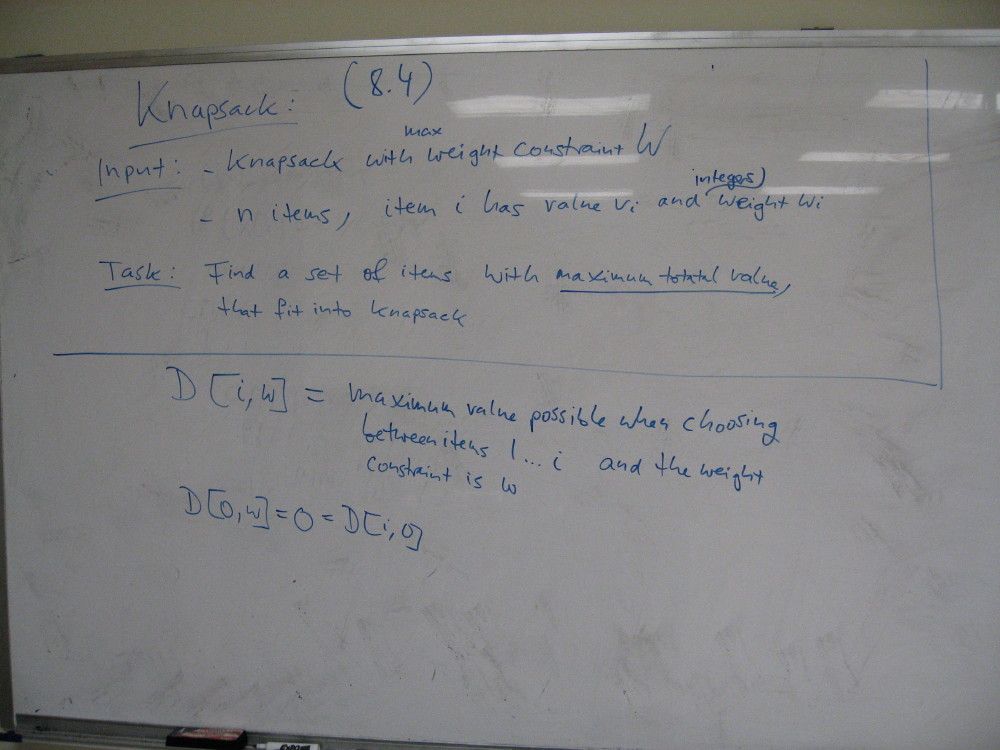 Knapsack: (8.4)
max
Input: - Knapsack with weight constraint W
integer)
- n items, item i has value vi and weight wi
Task: Find a set of items with maximum totatal value,
that fit into knapsack
D[i,w] = maximum value possible when choosing
between items 1...i and the weight
constraint is w
D[0,w]=0=D[i,0]
EXPO